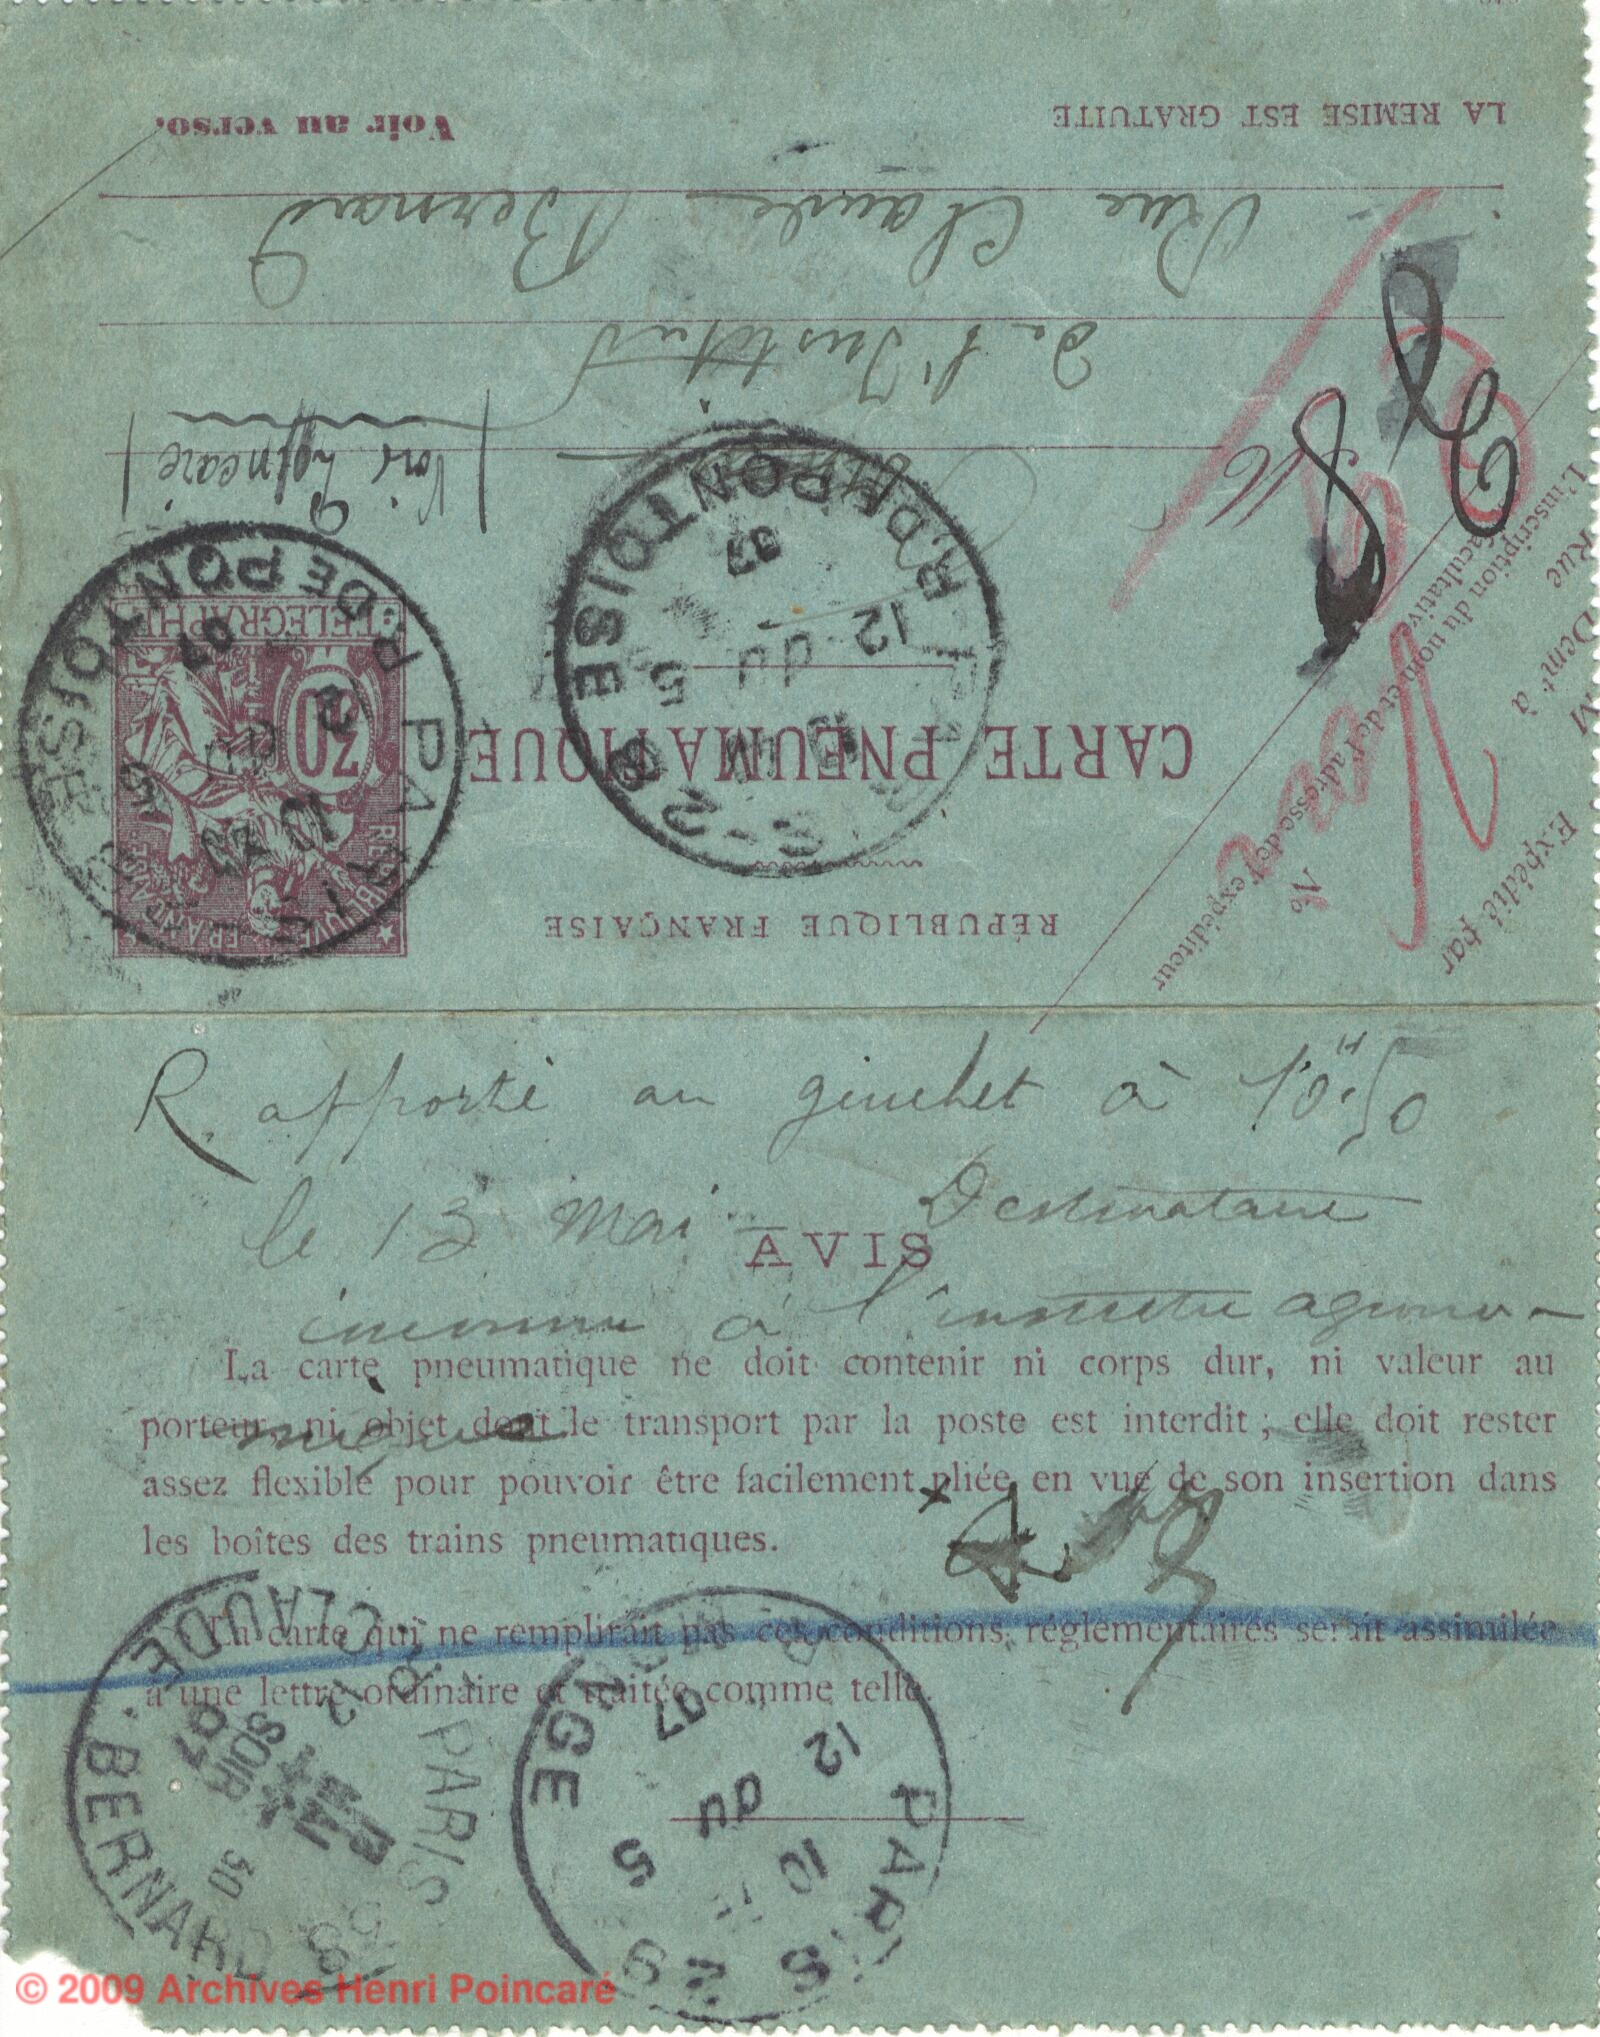 RÉPUBLIQUE FRANÇAISE
CARTE PNEUMATIQUE
REPUBLIQUE FRANÇAISE
30
TELEGRAPHE
PARIS
R. DE PONTOISE
07
PARIS-28
R. DE PONTOISE
12
5
07
(Voir Poincaré)
M
de l'Institut
Rue Claude Bernard
LA REMISE EST GRATUITE
Voir au verso.
Expédié par
M
Demt à
Rue
No
L'inscription du nom et de l'adresse de l'expéditeur
facultative
Rapporté au guichet à 10H50
le 13 Mai Destinataire
inconnu à l'institut agrono-
mique
AVIS
La carte pneumatique ne doit contenir ni corps dur, ni valeur au
porteur, ni objet dont le transport par la poste est interdit ; elle doit rester
assez flexible pour pouvoir être facilement pliée en vue de son insertion dans
les boîtes des trains pneumatiques.
La carte qui ne remplirait pas ces conditions réglementaires serait assimilée
à une lettre ordinaire et traitée comme telle.
PARIS
CLAUDE-BERNARD
SOIR
07
30
PARIS 29
10
12
5
07
© 2009 Archives Henri Poincaré